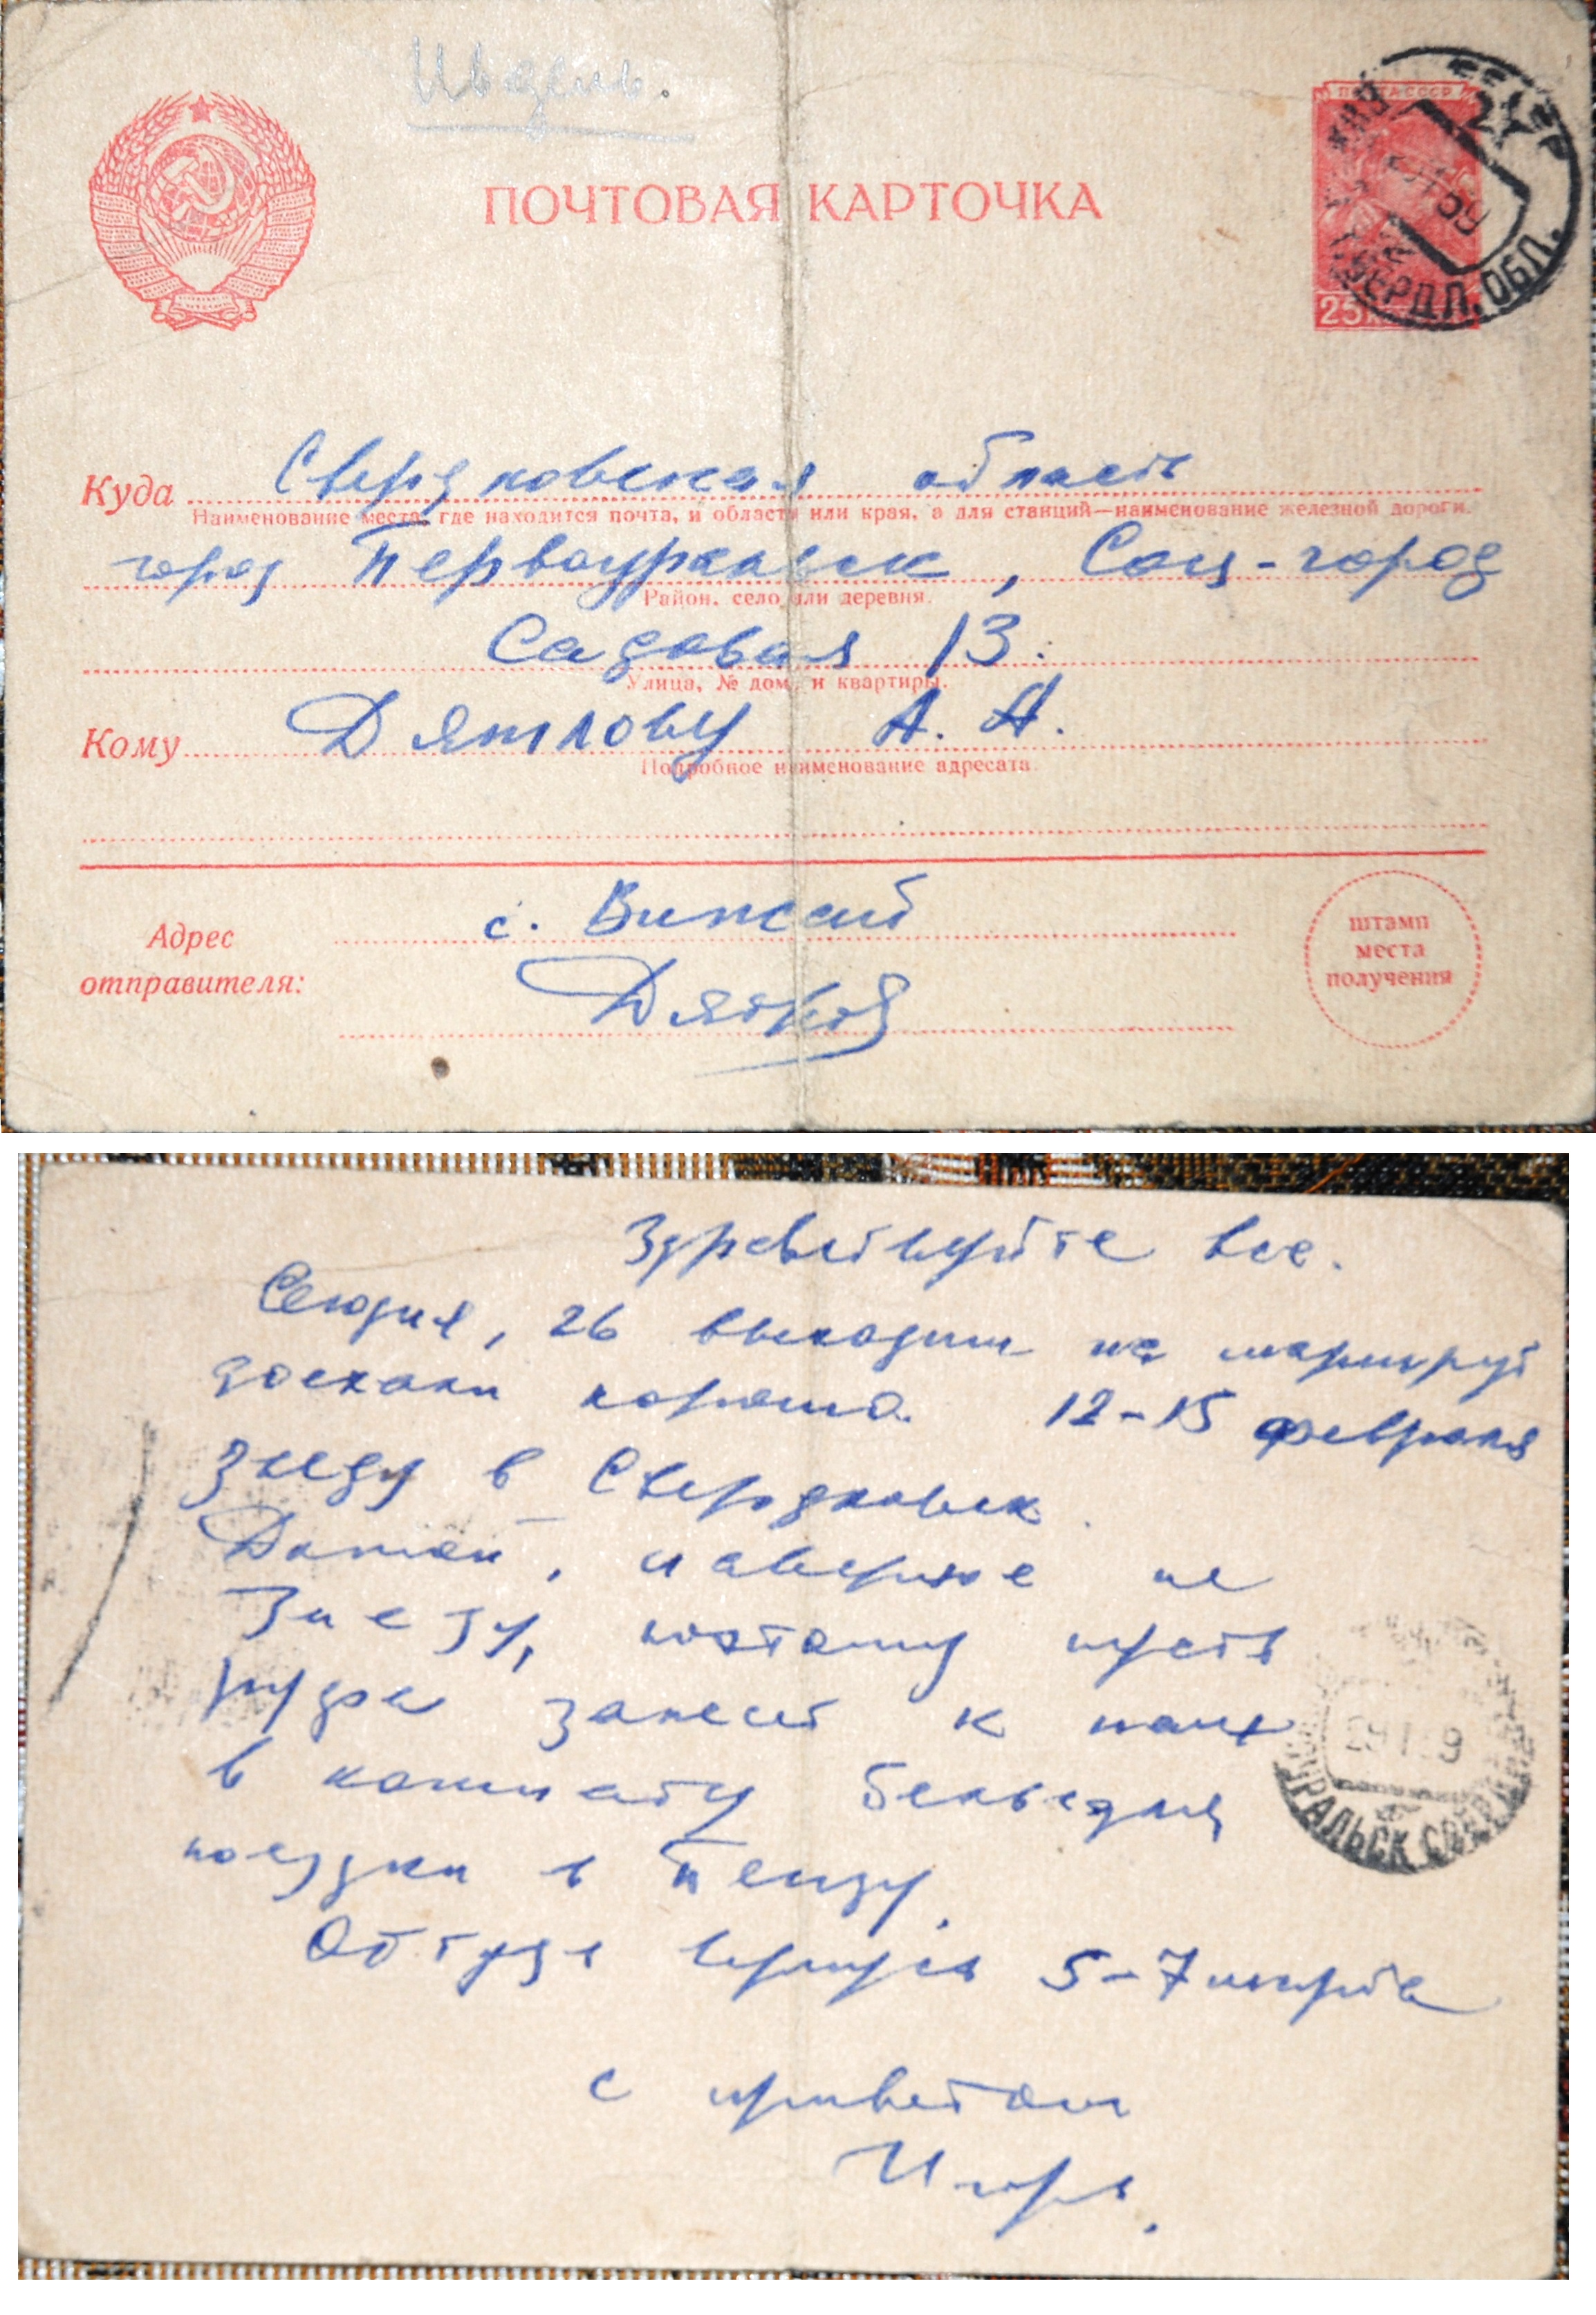 Ивдель.
ПОЧТОВАЯ КАРТОЧКА
ПОЧТА СССР
25
СВЕРДЛ. ОБЛ.
Куда Свердловская область
Наименование места, где находится почта, и области или края, а для станций—наименование железной дороги.
город Первоуральск, Соц-город
Район, село или деревня.
Садовая 13.
Улица, № дома и квартиры.
Кому Дятлову А. А.
Подробное наименование адресата.
Адрес
отправителя:
с. Вижай
Дятлов
штамп
места
получения
Здравствуйте все.
Сегодня, 26 выходим на маршрут
доехали хорошо. 12-15 февраля
заеду в Свердловск.
Домой, наверное не
заеду, поэтому пусть
Руфа занесет к нам
в комнату белье для
поездки в Пензу.
Оттуда вернусь 5-7 марта
С приветом
Игорь.
29 1 59
УРАЛЬСК СВЕРДЛ